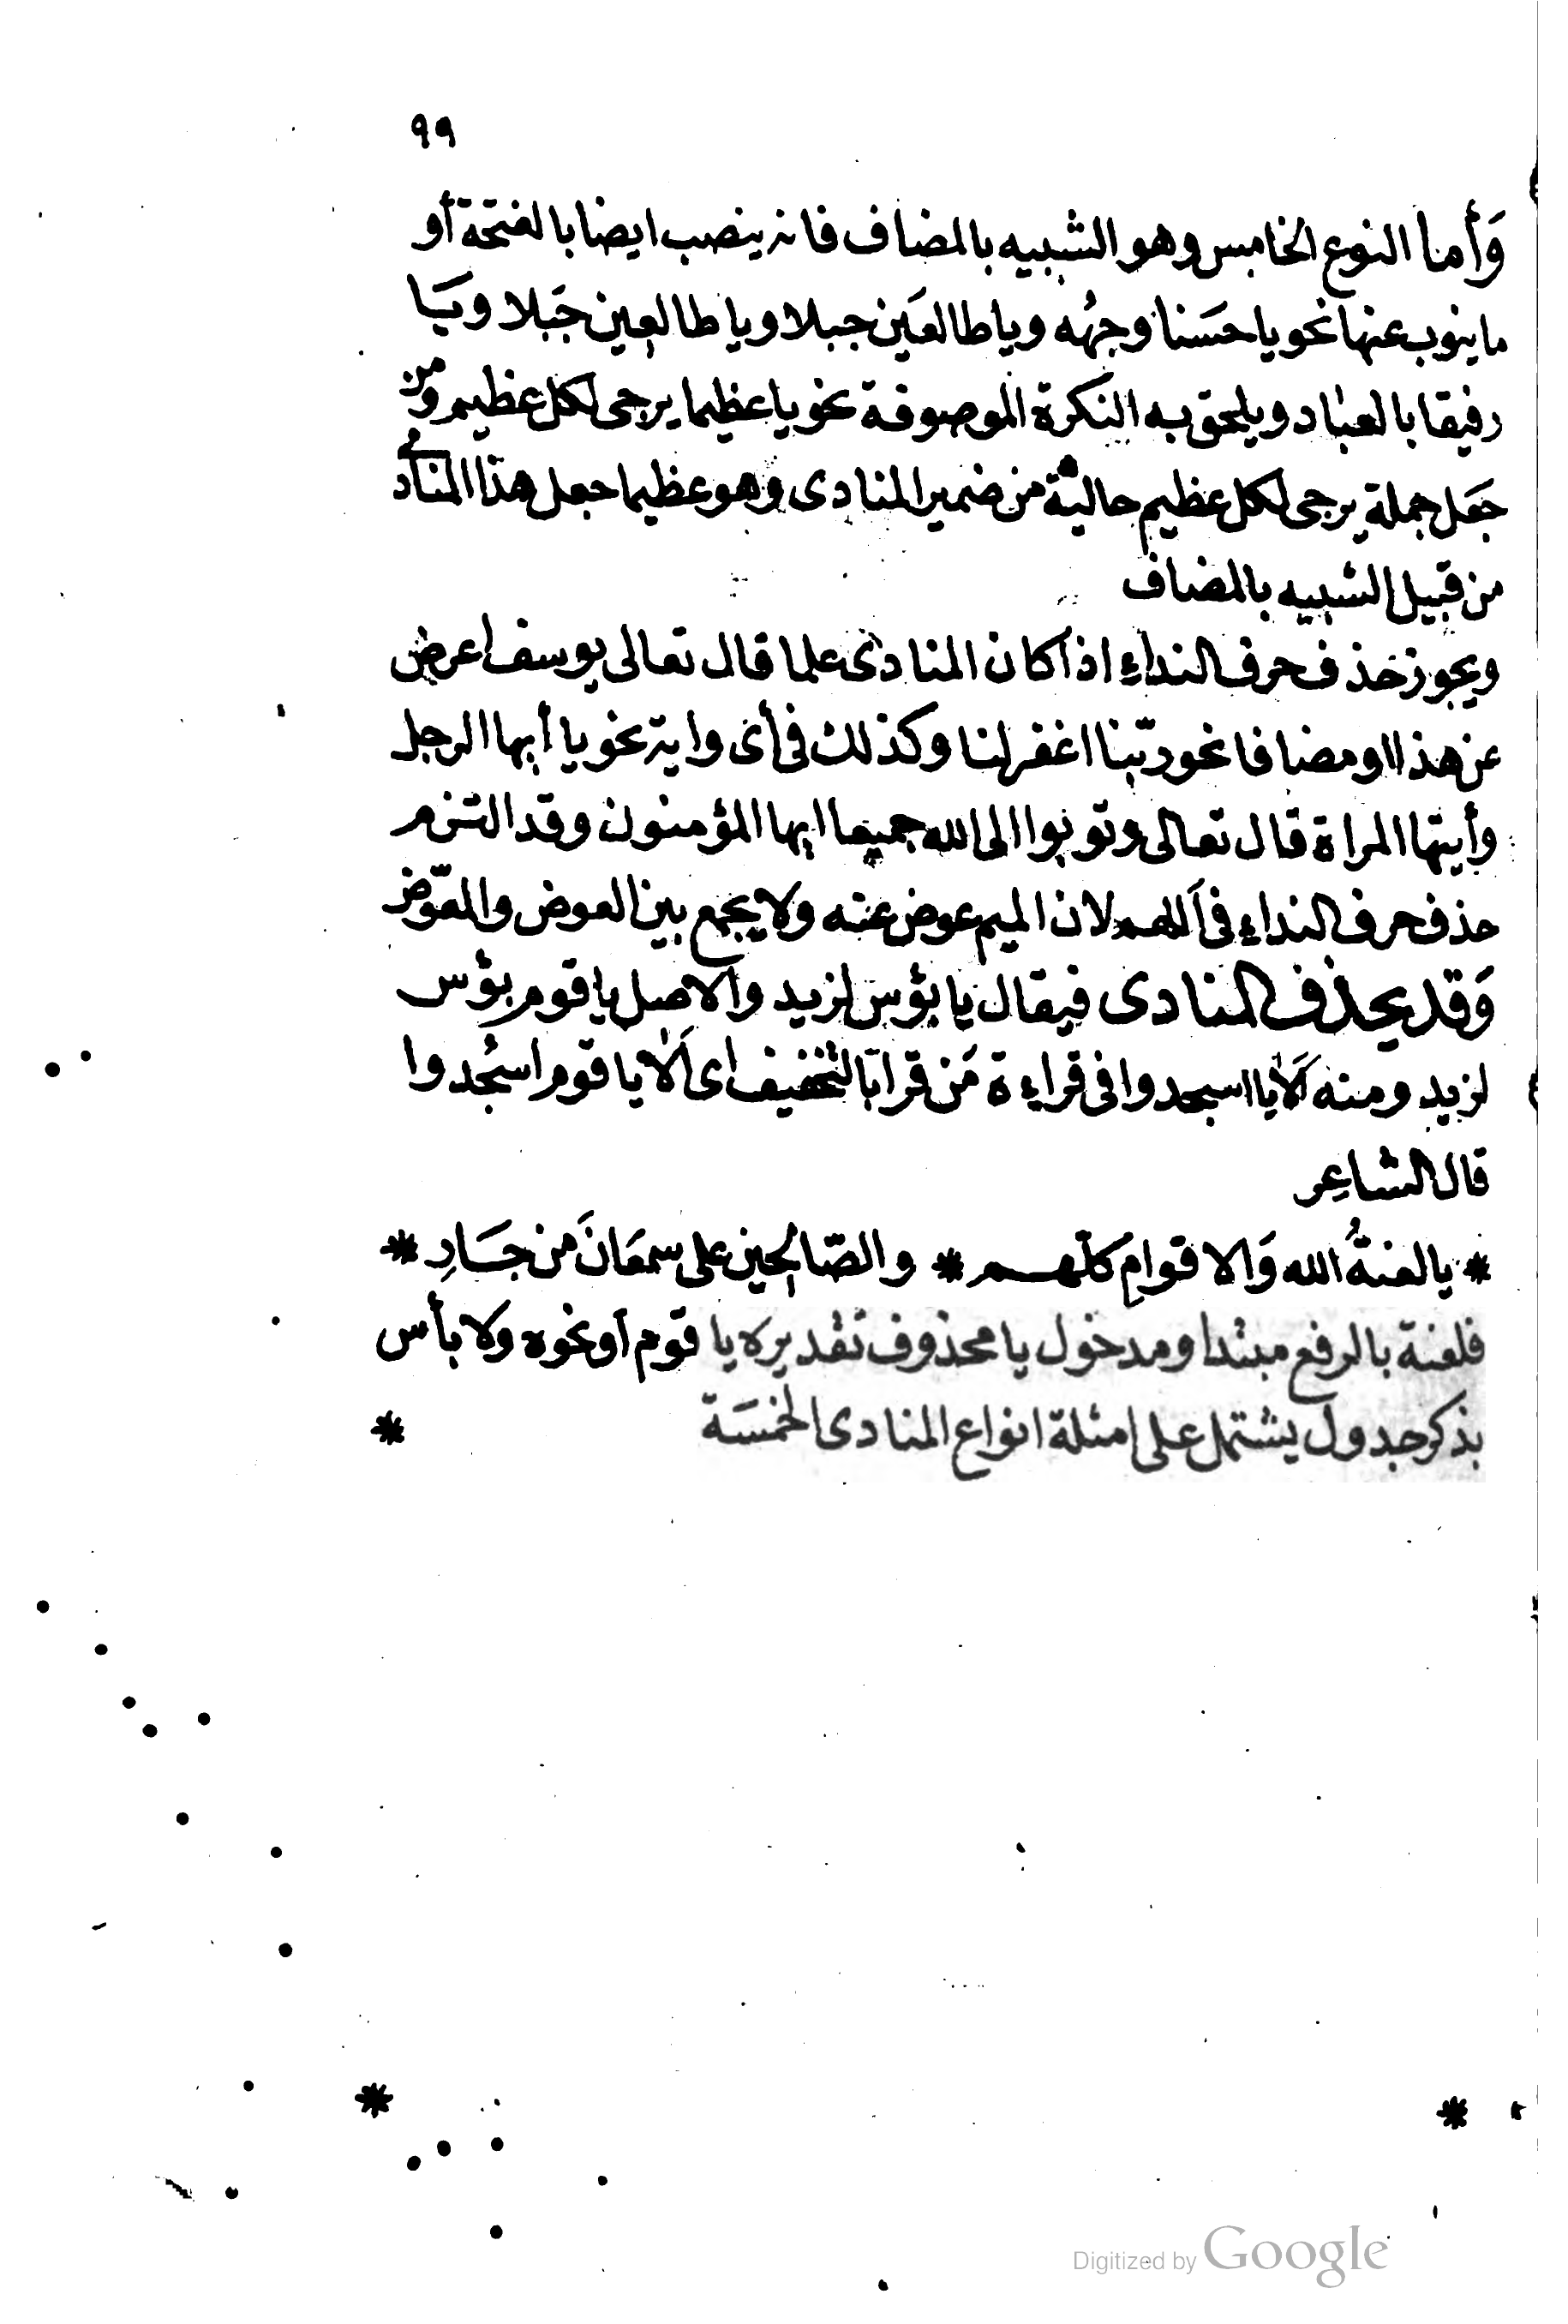 ٩٩
وَأما النوع الخامس وهو الشبيه بالمضاف فانه ينصب ايضا بالفتحة أو
ما ينوب عنها نحو يا حسَنا وجهُه ويا طالعَين جبلا ويا طالعِين جَبلا ويَا
رفيقا بالعبٰاد ويلحق به النكرة الموصوفة نحو يا عظيما يرجى لكل عظيم ومن
جعَل جملة يرجى لكل عظيم حالية من ضمير المنادى وهو عظيما جعل هذا المنادى
من قبيل الشبيه بالمضاف
ويجوز حذف حرف النداءِ اذا كان المنادى علما قال تعالى يوسف اعرض
عن هذا او مضافا نحو ربّنا اغفر لنا وكذلك فى أى واية نحو يا أيها الرجل
وأيتها المراة قال تعالى وتوبوا الى الله جميعا ايها المؤمنون وقد التزم
حذف حرف النداءِ فى اَللهم لان الميم عوض عنه ولا يجمع بين العوض والمعوّض
وَقد يحذف المنادى فيقال يا بؤس لزيد والاصل يا قوم بؤس
لزيد ومنه اَلا يا اسجدوا فى قراءة مَن قرا بالتخفيف اى اَلا يا قوم اسُجدوا
قال الشاعِر
* يا لعنةُ الله وَالاقوامِ كلّهم * والصّالحِين على سمعَانَ من جَارِ *
فلعنة بالرفع مبتدا ومدخول يا محذوف تقديره يا قوم أو نحوه ولا بأس
بذكر جدول يشتمل على امثلة انواع المنادى الخمسَة *
* *
Digitized by Google